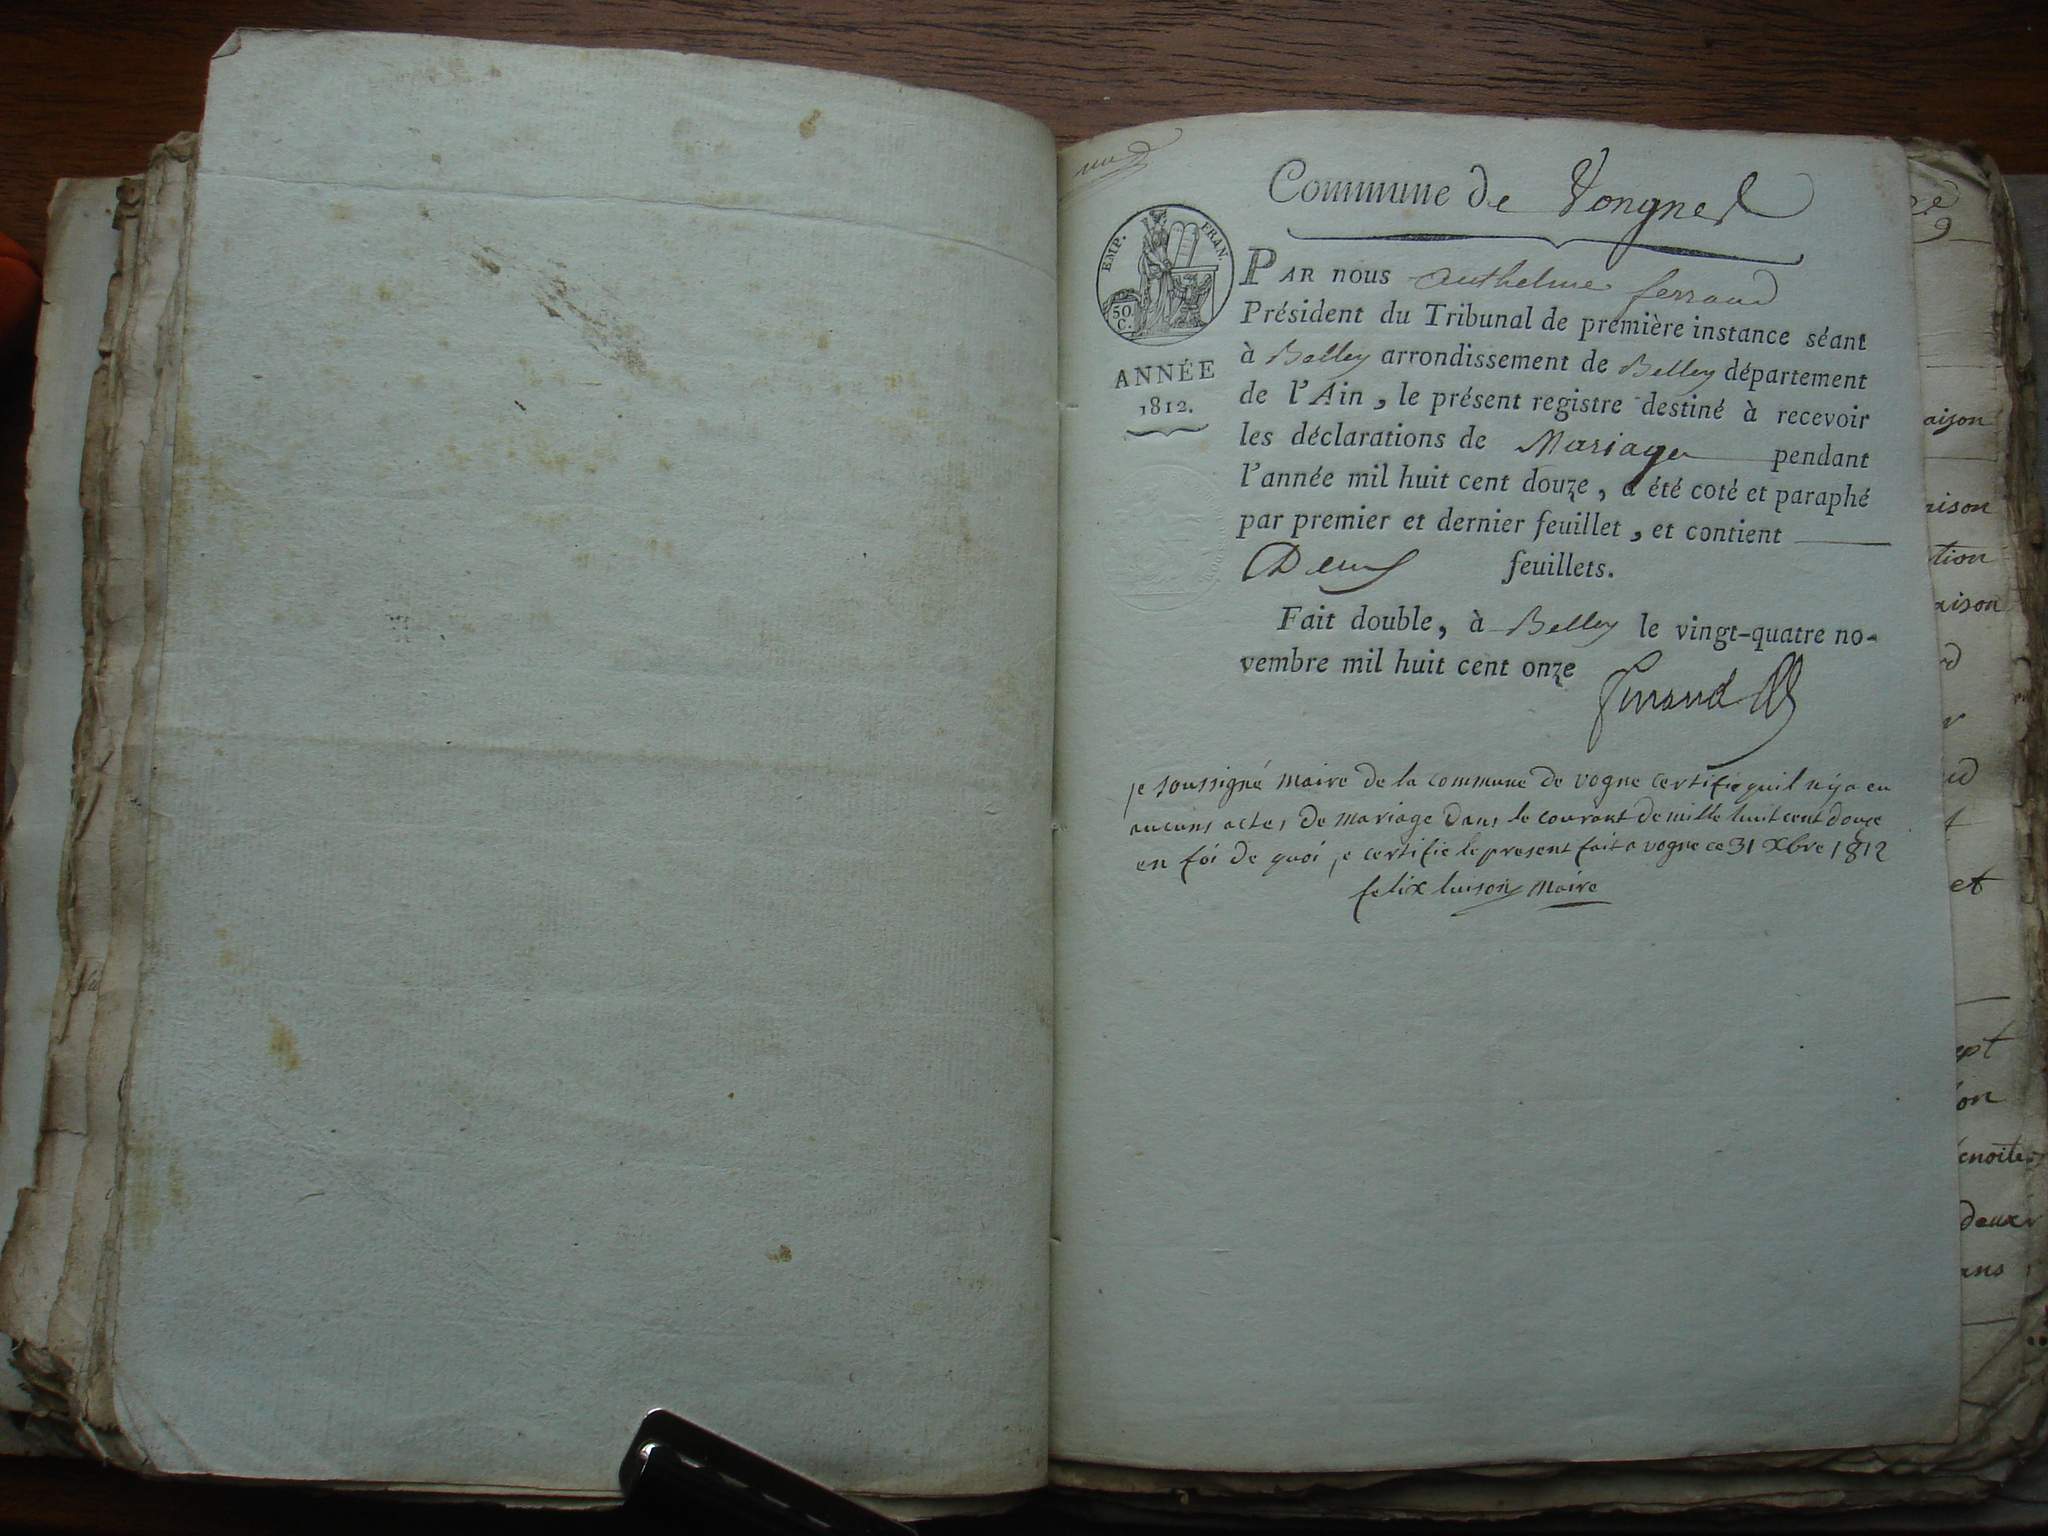 Commune de Vongnes
EMP. FRAN.
50.
C.
ANNÉE
1812.
PAR nous Anthelme ferrand
Président du Tribunal de première instance séant
à Belley arrondissement de Belley département
de l'Ain, le présent registre destiné à recevoir
les déclarations de Mariage pendant
l'année mil huit cent douze, a été coté et paraphé
par premier et dernier feuillet, et contient
Deux feuillets.
Fait double, à Belley le vingt-quatre no-
vembre mil huit cent onze
je soussigné maire de la commune de vogne certifie quil nÿ a eu
aucuns actes de mariage dans le courant de mille huit cent douze
en foi de quoi je certifie le present fait a vogne ce 31 Xbre 1812
felix luison maire
aison
aison
tion
aison
et
ept
on
enoite
deux
ans